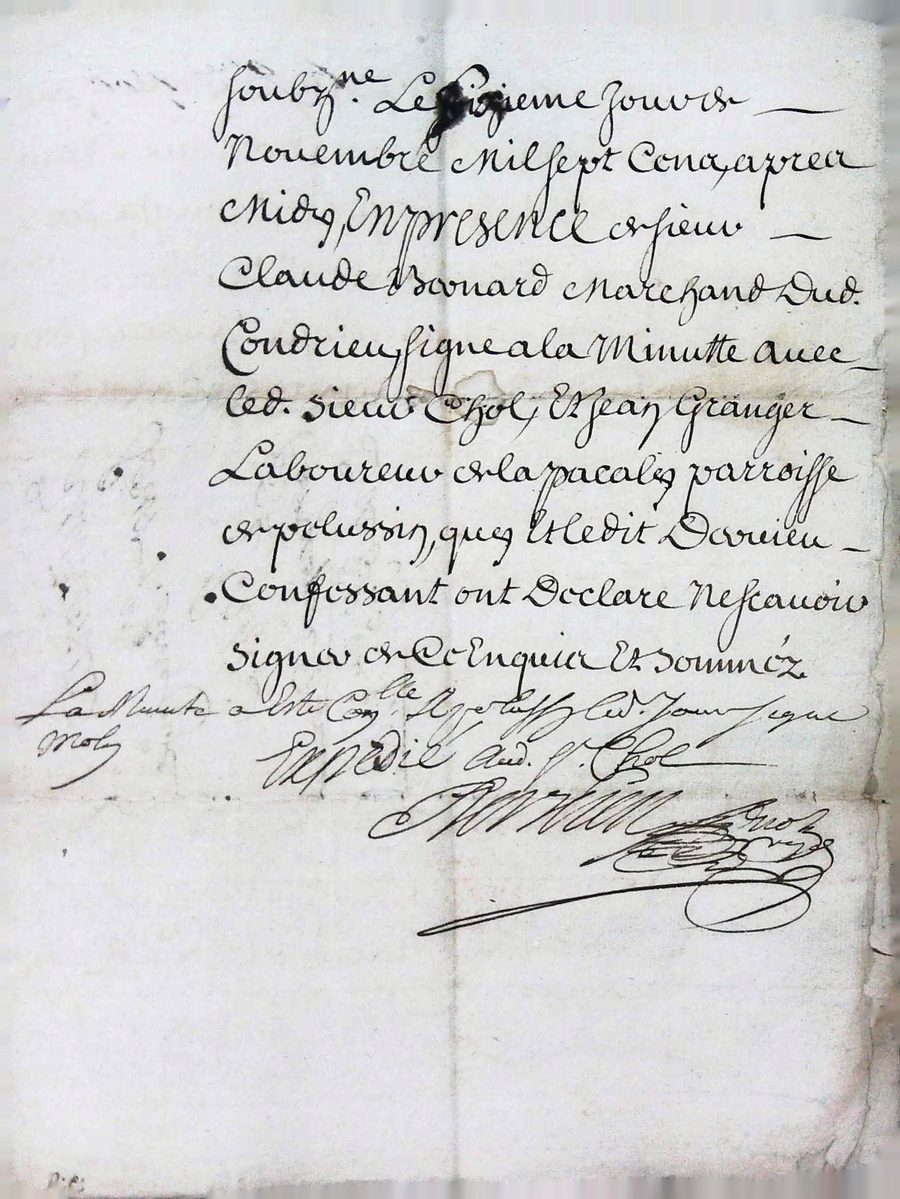 soubzne. Le sixieme Jour de
Novembre Mil sept Cens, apres
Midy, En presence de sieur
Claude Bonard Marchand Dud.
Condrieu, signe a la Minutte avec
led. Sieur Chol, Et Jean Granger
Laboureur de la pacalis parroisse
de pelussin, quy Et ledit Dervieu
Confessant ont Declare Ne scavoir
signer de Ce Enquis Et Sommez
La Minute a Este led. Jour signe
Expedie aud. Sr. Chol